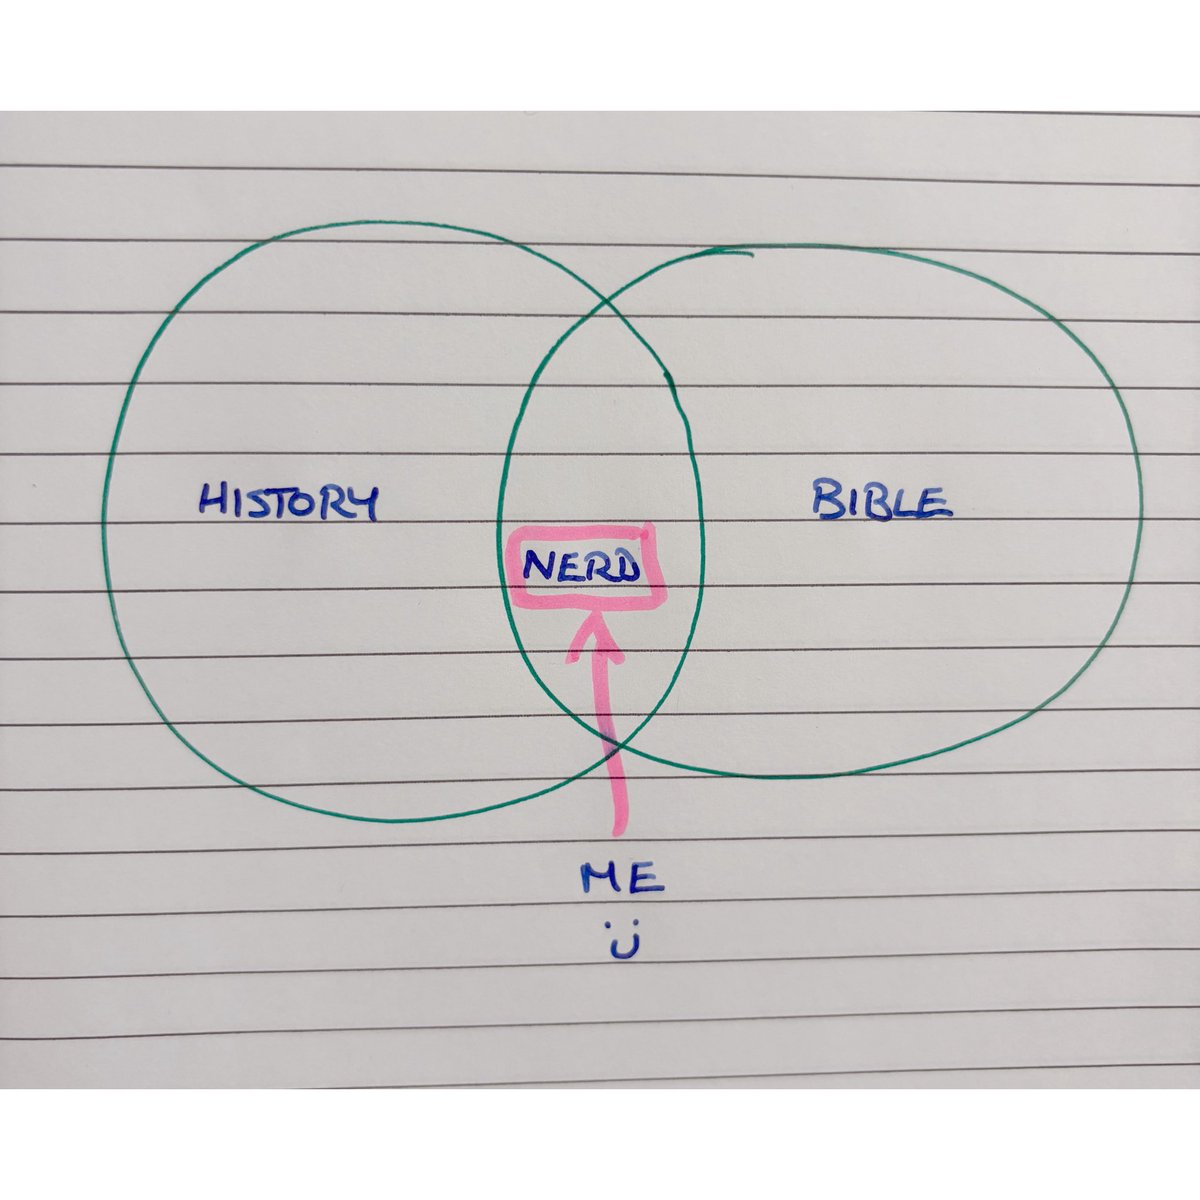 HISTORY
BIBLE
NERD
ME